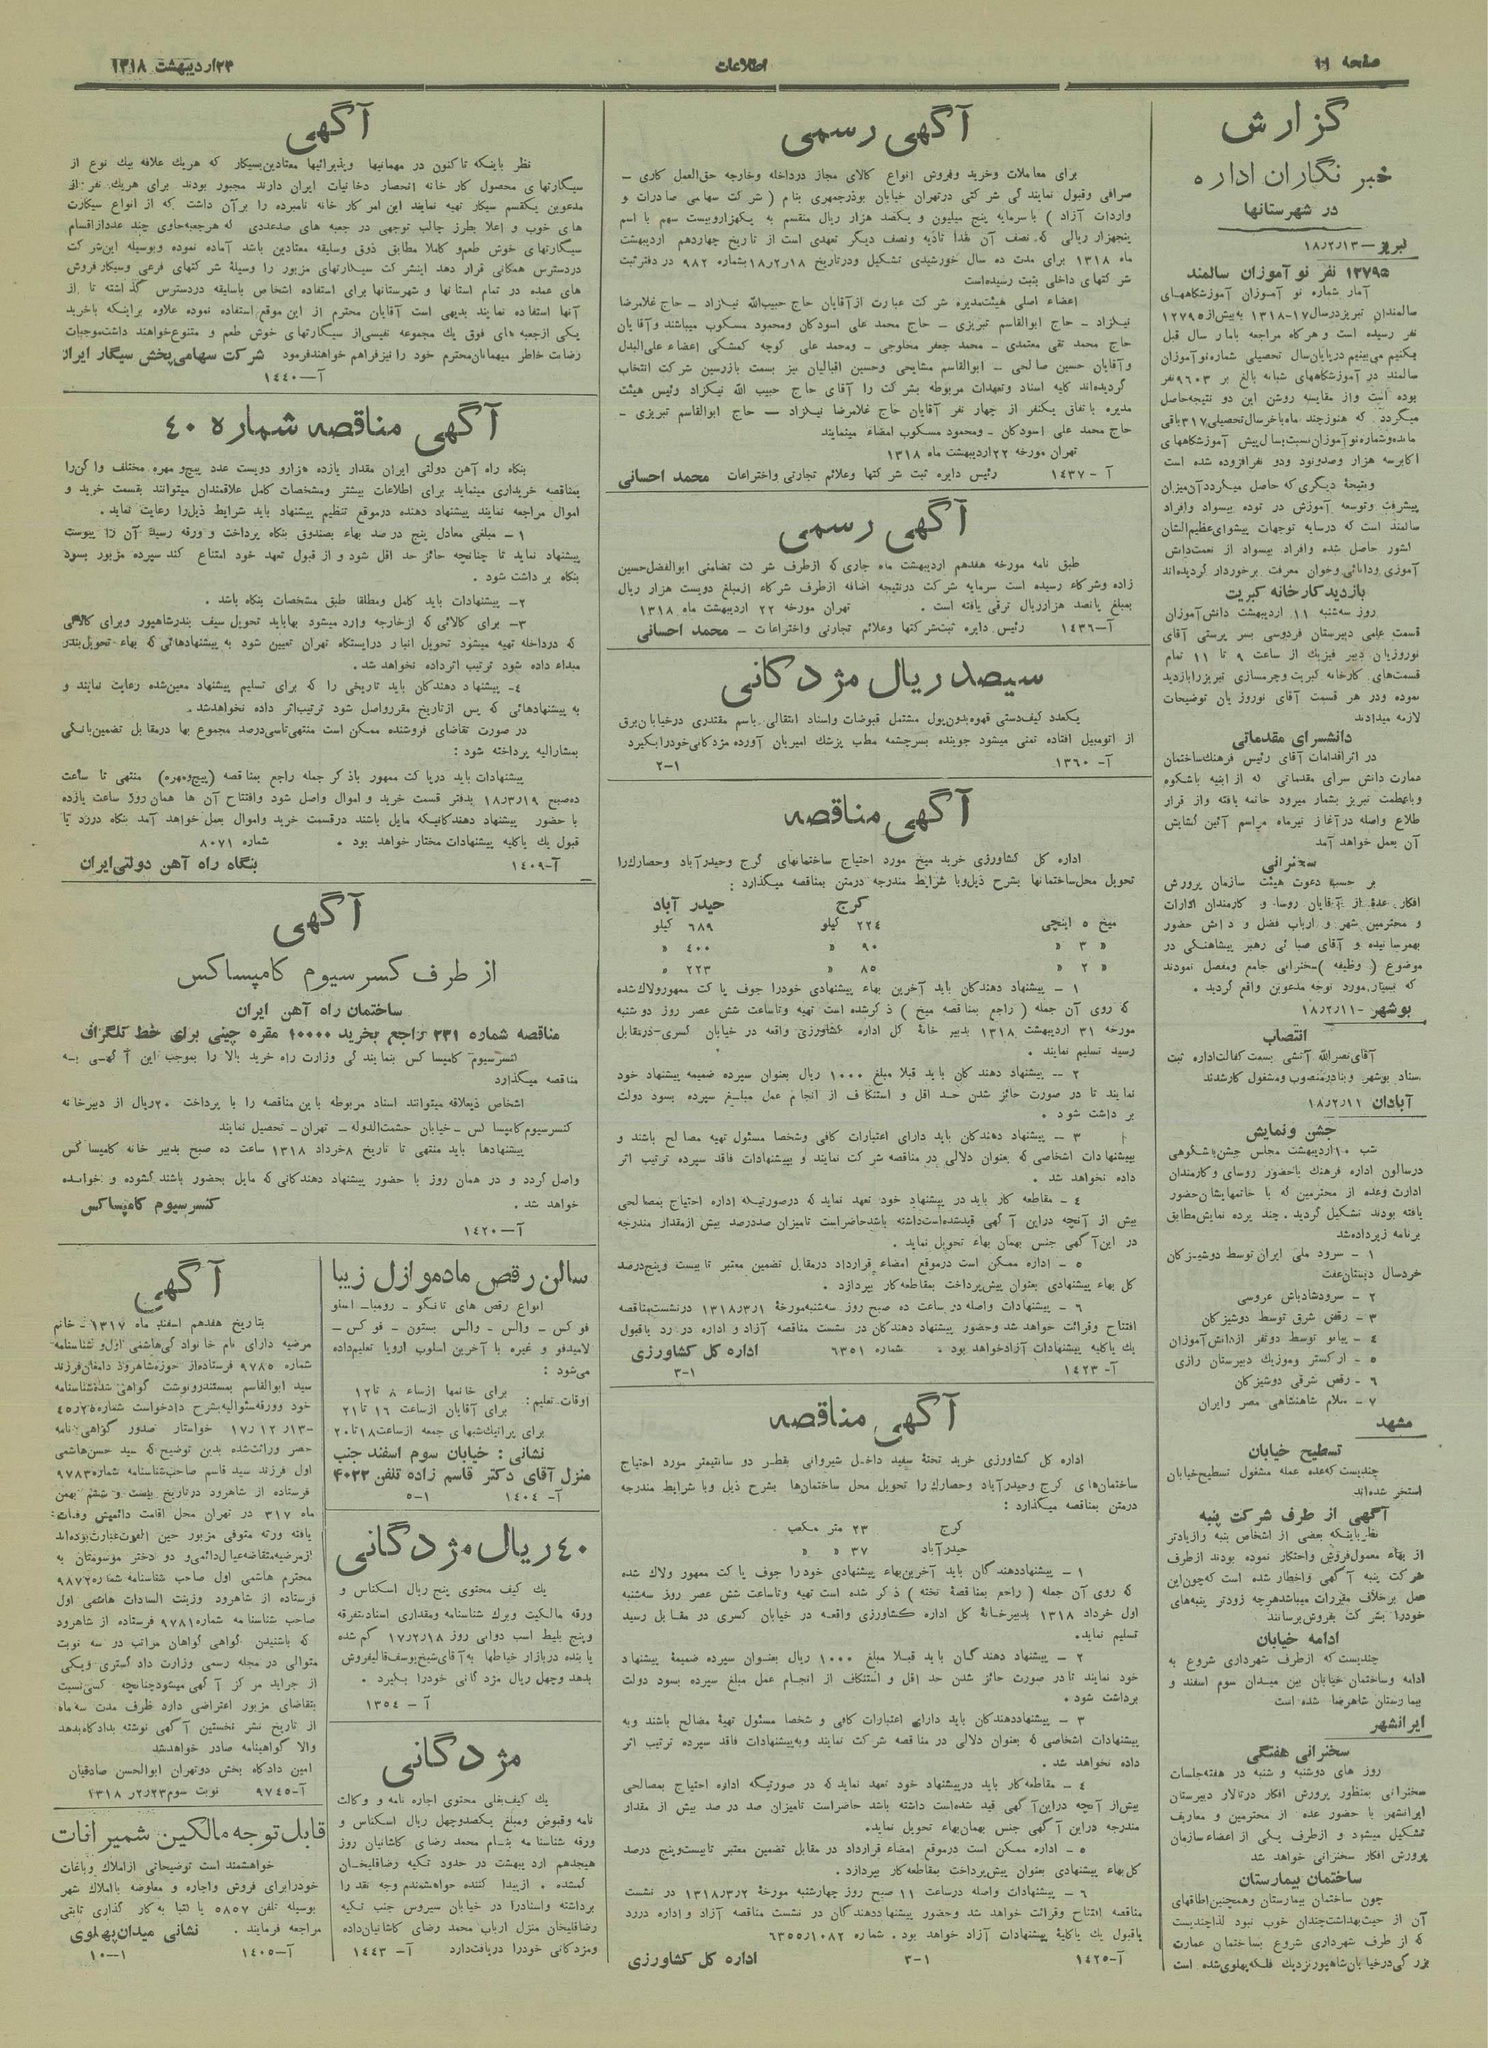 صفحه ۱۱
اطلاعات
۲۳ اردیبهشت ۱۳۱۸
گزارش
خبر نگاران اداره
در شهرستانها
تبریز – ۱۸٫۲٫۱۳
۱۲۷۹۵ نفر نو آموزان سالمند
آمار شماره نو آموزان آموزشگاههای
سالمندان تبریز درسال ۱۷–۱۳۱۸ به بیش از ۱۲۷۹۵
نفر رسیده است و هرگاه مراجعه بآمار سال قبل
بکنیم می‌بینیم در پایان سال تحصیلی شماره نو آموزان
سالمند در آموزشگاههای شبانه بالغ بر ۹۶۰۳ نفر
بوده است و از مقایسه روشن این دو نتیجه حاصل
میگردد که هنوز چند ماه بآخر سال تحصیلی ۳۱۷ باقی
مانده و شماره نو آموزان نسبت بسال پیش آموزشگاههای
اکابر سه هزار و صد و نود و دو نفر افزوده شده است
و نتیجهٔ دیگری که حاصل میگردد آن میزان
پیشرفت و توسعه آموزش در توده بیسواد و افراد
سالمند است که درسایه توجهات پیشوای عظیم الشان
کشور حاصل شده و افراد بیسواد از نعمت دانش
آموزی و دانائی و خوان معرفت برخوردار گردیده‌اند
بازدید کارخانه کبریت
روز سه‌شنبه ۱۱ اردیبهشت دانش آموزان
قسمت علمی دبیرستان فردوسی بسر پرستی آقای
نوروزیان دبیر فیزیک از ساعت ۹ تا ۱۱ تمام
قسمت‌های کارخانه کبریت و چرمسازی تبریز را بازدید
نموده و در هر قسمت آقای نوروزیان توضیحات
لازمه میدادند
دانشسرای مقدماتی
در اثر اقدامات آقای رئیس فرهنگ ساختمان
عمارت دانش سرای مقدماتی که از ابنیه باشکوه
و با عظمت تبریز بشمار میرود خاتمه یافته و از قرار
طلاع واصله در آغاز تیرماه مراسم آئین گشایش
آن بعمل خواهد آمد
سخنرانی
بر حسب دعوت هیئت سازمان پرورش
افکار عده‌ از آقایان روسا و کارمندان ادارات
و محترمین شهر و ارباب فضل و دانش حضور
بهمرسانیده و آقای صبائی رهبر پیشاهنگی در
موضوع ( وظیفه ) سخنرانی جامع و مفصل نمودند
که بسیار مورد توجه مدعوین واقع گردید .
بوشهر – ۱۸٫۲٫۱۱
انتصاب
آقای نصرالله آتشی بسمت کفالت اداره ثبت
سناد بوشهر و بنادر منصوب و مشغول کار شدند
آبادان ۱۸٫۲٫۱۱
جشن و نمایش
شب ۱۰ اردیبهشت مجلس جشن باشکوهی
درسالون اداره فرهنگ باحضور روسای و کارمندان
ادارت و عده از محترمین که با خانمهایشان حضور
یافته بودند تشکیل گردید . چند پرده نمایش مطابق
برنامه زیر داده شد
۱ – سرود ملی ایران توسط دوشیزگان
خردسال دبستان عفت
۲ – سرود شادباش عروسی
۳ – رقص شرق توسط دوشیزگان
۴ – پیانو توسط دو نفر از دانش آموزان
۵ – ارکستر و موزیک دبیرستان رازی
۶ – رقص شرقی دوشیزگان
۷ – سلام شاهنشاهی مصر و ایران
مشهد
تسطیح خیابان
چندیست که عده عمله مشغول تسطیح خیابان
استخر شده‌اند
آگهی از طرف شرکت پنبه
نظر باینکه بعضی از اشخاص پنبه را زیادتر
از بهاء معمول فروش و احتکار نموده بودند از طرف
شرکت پنبه آگهی و اخطار شده است که چون این
عمل برخلاف مقررات میباشد هرچه زودتر پنبه‌های
خود را بشرکت بفروش برسانند
ادامه خیابان
چندیست که از طرف شهرداری شروع به
ادامه و ساختمان خیابان بین میدان سوم اسفند و
بیمارستان شاهرضا شده است
ایرانشهر
سخنرانی هفتگی
روز های دوشنبه و شنبه در هفته جلسات
سخنرانی بمنظور پرورش افکار در تالار دبیرستان
ایرانشهر با حضور عده از محترمین و معاریف
تشکیل میشود و از طرف یکی از اعضاء سازمان
پرورش افکار سخنرانی خواهد شد
ساختمان بیمارستان
چون ساختمان بیمارستان و همچنین اطاقهای
آن از حیث بهداشت چندان خوب نبود لذا چندیست
که از طرف شهرداری شروع بساختمان عمارت
بزرگی در خیابان شاهپور نزدیک فلکه پهلوی شده است
آگهی رسمی
برای معاملات و خرید و فروش انواع کالای مجاز در داخله و خارجه حق العمل کاری –
صرافی و قبول نمایندگی شرکتی در تهران خیابان بوذرجمهری بنام ( شرکت سهامی صادرات و
واردات آزاد ) با سرمایه پنج میلیون و یکصد هزار ریال منقسم به یکهزار و بیست سهم با اسم
پنجهزار ریالی که نصف آن نقدا تادیه و نصف دیگر تعهدی است از تاریخ چهاردهم اردیبهشت
ماه ۱۳۱۸ برای مدت ده سال خورشیدی تشکیل و در تاریخ ۱۸٫۲٫۱۸ بشماره ۹۸۲ در دفتر ثبت
شرکتهای داخلی بثبت رسیده است
اعضاء اصلی هیئت مدیره شرکت عبارت از آقایان حاج حبیب‌الله نیکزاد – حاج غلامرضا
نیکزاد – حاج ابوالقاسم تبریزی – حاج محمد علی اسودکان و محمود مسکوب میباشند و آقایان
حاج محمد تقی معتمدی – محمد جعفر مخلوجی – و محمد علی کوچه کمشکی اعضاء علی البدل
و آقایان حسین صالحی – ابوالقاسم مشایخی و حسین اقبالیان نیز بسمت بازرسین شرکت انتخاب
گردیده‌اند کلیه اسناد و تعهدات مربوطه بشرکت را آقای حاج حبیب الله نیکزاد رئیس هیئت
مدیره باتفاق یکنفر از چهار نفر آقایان حاج غلامرضا نیکزاد – حاج ابوالقاسم تبریزی –
حاج محمد علی اسودکان – و محمود مسکوب امضاء مینمایند
تهران مورخه ۲۲ اردیبهشت ماه ۱۳۱۸
آ – ۱۴۳۷ رئیس دایره ثبت شرکتها و علائم تجارتی و اختراعات محمد احسانی
آگهی رسمی
طبق نامه مورخه هفدهم اردیبهشت ماه جاری که از طرف شرکت تضامنی ابوالفضل حسین
زاده و شرکاء رسیده است سرمایه شرکت در نتیجه اضافه از طرف شرکاء از مبلغ دویست هزار ریال
بمبلغ پانصد هزار ریال ترقی یافته است . تهران مورخه ۲۲ اردیبهشت ماه ۱۳۱۸
آ–۱۴۳۶ رئیس دایره ثبت شرکتها و علائم تجارتی و اختراعات – محمد احسانی
سیصد ریال مژدگانی
یکعدد کیف دستی قهوه بدون پول مشتمل قبوضات و اسناد انتقالی باسم مقتدری در خیابان برق
از اتومبیل افتاده تمنی میشود جوینده بسرچشمه مطب پزشک امیریان آورده مژدگانی خود را بگیرد
آ– ۱۳۶۰ ۲–۱
آگهی مناقصه
اداره کل کشاورزی خرید میخ مورد احتیاج ساختمانهای کرج و حیدرآباد و حصارک را
تحویل محل ساختمانها بشرح ذیل و با شرایط مندرجه در متن بمناقصه میگذارد :
کرج حیدر آباد
میخ ۵ اینچی ۲۲۴ کیلو ۶۸۹ کیلو
« ۳ « ۹۰ « ۴۰۰ «
« ۲ « ۸۵ « ۲۲۳ «
۱ – پیشنهاد دهندگان باید آخرین بهاء پیشنهادی خود را جوف پاکت ممهور و لاک شده
که روی آن جمله ( راجع بمناقصه میخ ) ذکر شده است تهیه و تا ساعت شش عصر روز دوشنبه
مورخه ۳۱ اردیبهشت ۱۳۱۸ بدبیر خانهٔ کل اداره کشاورزی واقعه در خیابان کسری – درمقابل
رسید تسلیم نمایند .
۲ – پیشنهاد دهندگان باید قبلا مبلغ ۱۰۰۰ ریال بعنوان سپرده ضمیمه پیشنهاد خود
نمایند تا در صورت حائز شدن حد اقل و استنکاف از انجام عمل مبلغ سپرده بسود دولت
برداشت شود .
۳ – پیشنهاد دهندگان باید دارای اعتبارات کافی و شخصا مسئول تهیه مصالح باشند و
پیشنهادات اشخاصی که بعنوان دلالی در مناقصه شرکت نمایند و پیشنهادات فاقد سپرده ترتیب اثر
داده نخواهد شد .
۴ – مقاطعه کار باید در پیشنهاد خود تعهد نماید که در صورتیکه اداره احتیاج بمصالحی
بیش از آنچه در این آگهی قید شده است داشته باشد حاضر است تا میزان صد درصد بیش از مقدار مندرجه
در این آگهی جنس بهمان بهاء تحویل نماید .
۵ – اداره ممکن است در موقع امضاء قرارداد در مقابل تضمین معتبر تا بیست و پنج درصد
کل بهاء پیشنهادی بعنوان پیش پرداخت بمقاطعه کار بپردازد .
۶ – پیشنهادات واصله در ساعت ده صبح روز سه‌شنبه مورخهٔ ۱۳۱۸٫۳٫۱ در نشست مناقصه
افتتاح و قرائت خواهد شد و حضور پیشنهاد دهندگان در نشست مناقصه آزاد و اداره در رد یا قبول
یک یا کلیه پیشنهادات آزاد خواهد بود . شماره ۶۳۵۱ اداره کل کشاورزی
آ– ۱۴۲۳ ۳–۱
آگهی مناقصه
اداره کل کشاورزی خرید تختهٔ سفید داخل شیروانی بقطر دو سانتیمتر مورد احتیاج
ساختمان‌های کرج و حیدرآباد و حصارک را تحویل محل ساختمان‌ها بشرح ذیل و با شرایط مندرجه
در متن بمناقصه میگذارد :
کرج ۲۳ متر مکعب
حیدر آباد ۳۷ « «
۱ – پیشنهاد دهندگان باید آخرین بهاء پیشنهادی خود را جوف پاکت ممهور ولاک شده
که روی آن جمله ( راجع بمناقصهٔ تخته ) ذکر شده است تهیه و تا ساعت شش عصر روز سه‌شنبه
اول خرداد ۱۳۱۸ بدبیرخانهٔ کل اداره کشاورزی واقعه در خیابان کسری در مقابل رسید
تسلیم نماید.
۲ – پیشنهاد دهندگان باید قبلا مبلغ ۱۰۰۰ ریال بعنوان سپرده ضمیمهٔ پیشنهاد
خود نمایند تا در صورت حائز شدن حد اقل و استنکاف از انجام عمل مبلغ سپرده بسود دولت
برداشت شود .
۳ – پیشنهاد دهندگان باید دارای اعتبارات کافی و شخصا مسئول تهیهٔ مصالح باشند و به
پیشنهادات اشخاصی که بعنوان دلالی در مناقصه شرکت نمایند و به پیشنهادات فاقد سپرده ترتیب اثر
داده نخواهد شد .
۴ – مقاطعه کار باید در پیشنهاد خود تعهد نماید که در صورتیکه اداره احتیاج بمصالحی
بیش از آنچه در این آگهی قید شده است داشته باشد حاضر است تا میزان صد در صد بیش از مقدار
مندرجه در این آگهی جنس بهمان بهاء تحویل نماید.
۵ – اداره ممکن است در موقع امضاء قرارداد در مقابل تضمین معتبر تا بیست و پنج درصد
کل بهاء پیشنهادی بعنوان پیش پرداخت بمقاطعه کار بپردازد .
۶ – پیشنهادات واصله در ساعت ۱۱ صبح روز چهارشنبه مورخهٔ ۱۳۱۸٫۳٫۲ در نشست
مناقصه افتتاح و قرائت خواهد شد و حضور پیشنهاد دهندگان در نشست مناقصه آزاد و اداره در رد
یا قبول یک یا کلیهٔ پیشنهادات آزاد خواهد بود. شماره ۶۳۵۵٫۱۰۸۲
آ–۱۴۲۵ ۳–۱ اداره کل کشاورزی
آگهی
نظر باینکه تاکنون در مهمانیها و پذیرائیها معتادین بسیگار که هریک علاقه بیک نوع از
سیگارتهای محصول کارخانه انحصار دخانیات ایران دارند مجبور بودند برای هریک نفر از
مدعوین یکقسم سیگار تهیه نمایند این امر کارخانه نامبرده را بر آن داشت که از انواع سیگارت
های خوب و اعلا بطرز جالب توجهی در جعبه های صد عددی که هر جعبه حاوی چند عدد از اقسام
سیگارتهای خوش طعم و کاملا مطابق ذوق و سلیقه معتادین باشد آماده نموده و بوسیله این شرکت
در دسترس همگانی قرار دهد اینشرکت سیگارتهای مزبور را وسیلهٔ شرکتهای فرعی و سیگار فروش
های عمده در تمام استانها و شهرستانها برای استفاده اشخاص باسلیقه در دسترس گذاشته تا از
آنها استفاده نمایند بدیهی است آقایان محترم از این موقع استفاده نموده علاوه بر اینکه با خرید
یکی از جعبه های فوق یک مجموعه نفیسی از سیگارتهای خوش طعم و متنوع خواهند داشت موجبات
رضایت خاطر میهمانان محترم خود را نیز فراهم خواهند فرمود شرکت سهامی پخش سیگار ایران
آ–۱۴۴۰
آگهی مناقصه شماره ۴۰
بنگاه راه آهن دولتی ایران مقدار یازده هزار و دویست عدد پیچ و مهره مختلف واگن را
بمناقصه خریداری مینماید برای اطلاعات بیشتر و مشخصات کامل علاقمندان میتوانند بقسمت خرید و
اموال مراجعه نمایند پیشنهاد دهنده در موقع تنظیم پیشنهاد باید شرایط ذیل را رعایت نماید.
۱ – مبلغی معادل پنج درصد بهاء بصندوق بنگاه پرداخت و ورقه رسید آن را پیوست
پیشنهاد نماید تا چنانچه حائز حد اقل شود و از قبول تعهد خود امتناع کند سپرده مزبور بسود
بنگاه برداشت شود .
۲– پیشنهادات باید کامل و مطلقا طبق مشخصات بنگاه باشد .
۳– برای کالائی که از خارجه وارد میشود بها باید تحویل سیف بندرشاهپور و برای کالائی
که در داخله تهیه میشود تحویل انبار در ایستگاه تهران تعیین شود به پیشنهادهائی که بهاء تحویل بندر
مبداء داده شود ترتیب اثر داده نخواهد شد .
۴– پیشنهاد دهندگان باید تاریخی را که برای تسلیم پیشنهاد معین شده رعایت نمایند و
به پیشنهادهائی که پس از تاریخ مقرر واصل شود ترتیب اثر داده نخواهد شد .
در صورت تقاضای فروشنده ممکن است منتهی تا سی درصد مجموع بها در مقابل تضمین بانکی
بمشارالیه پرداخته شود :
پیشنهادات باید در پاکت ممهور با ذکر جمله راجع بمناقصه (پیچ و مهره) منتهی تا ساعت
ده صبح ۱۸٫۳٫۱۹ بدفتر قسمت خرید و اموال واصل شود و افتتاح آن ها همان روز ساعت یازده
با حضور پیشنهاد دهندگانیکه مایل باشند در قسمت خرید و اموال بعمل خواهد آمد بنگاه در رد یا
قبول یک یا کلیه پیشنهادات مختار خواهد بود . شماره ۸۰۷۱
آ–۱۴۰۹ بنگاه راه آهن دولتی ایران
آگهی
از طرف کنسرسیوم کامپساکس
ساختمان راه آهن ایران
مناقصه شماره ۲۳۱ راجع بخرید ۱۰۰۰۰ مقره چینی برای خط تلگراف
کنسرسیوم کامپساکس بنمایندگی وزارت راه خرید بالا را بموجب این آگهی به
مناقصه میگذارد
اشخاص ذیعلاقه میتوانند اسناد مربوطه باین مناقصه را با پرداخت ۲۰ ریال از دبیرخانه
کنسرسیوم کامپساکس – خیابان حشمت الدوله – تهران – تحصیل نمایند
پیشنهادها باید منتهی تا تاریخ ۸ خرداد ۱۳۱۸ ساعت ده صبح بدبیر خانه کامپساکس
واصل گردد و در همان روز با حضور پیشنهاد دهندگانی که مایل بحضور باشند گشوده و خوانده
خواهد شد . کنسرسیوم کامپساکس
آ–۱۴۲۰
سالن رقص مادموازل زیبا
انواع رقص های تانگو – رومبا – اسلو
فوکس – والس – والس بستون – فوکس –
لامبدفو و غیره با آخرین اسلوب اروپا تعلیم داده
می‌شود :
اوقات تعلیم : برای خانمها از ساعت ۸ تا ۱۲
برای آقایان از ساعت ۱۶ تا ۲۱
برای پراتیک شبهای جمعه از ساعت ۱۸ تا ۲۰
نشانی : خیابان سوم اسفند جنب
منزل آقای دکتر قاسم زاده تلفن ۴۰۳۳
آ– ۱۴۰۴ ۵–۱
۴۰ ریال مژدگانی
یک کیف محتوی پنج ریال اسکناس و
ورقه مالکیت و برک شناسنامه و مقداری اسناد متفرقه
و پنج بلیط اسب دوانی روز ۱۷٫۲٫۱۸ گم شده
یابنده در بازار خیاطها به آقای شیخ یوسف قالیفروش
بدهد و چهل ریال مژدگانی خود را بگیرد .
آ – ۱۳۵۴
مژدگانی
یک کیف بغلی محتوی اجاره نامه و وکالت
نامه و قبوض و مبلغ یکصد و چهل ریال اسکناس و
ورقه شناسنامه بنام محمد رضای کاشانیان روز
هیجدهم اردیبهشت در حدود تکیه رضاقلیخان
گمشده . از پیدا کننده خواهشمندم وجه نقد را
برداشته و اسناد را در خیابان سیروس جنب تکیه
رضاقلیخان منزل ارباب محمد رضای کاشانیان داده
و مژدگانی خود را دریافت دارد آ– ۱۴۴۳
آگهی
بتاریخ هفدهم اسفند ماه ۱۳۱۷– خانم
مرضیه دارای نام خانوادگی هاشمی اول و شناسنامه
شماره ۹۷۸۵ فرستاده از حوزه شاهرود دامغان فرزند
سید ابوالقاسم بمستند رونوشت گواهی شده شناسنامه
خود و ورقه سئوالیه بشرح دادخواست شماره ۴۵٫۲۵
–۱۷٫۱۲٫۱۳ خواستار صدور گواهی نامه
حصر وراثت شده بدین توضیح که سید حسن هاشمی
اول فرزند سید قاسم صاحب شناسنامه شماره ۹۷۸۳
فرستاده از شاهرود در تاریخ بیست و ششم بهمن
ماه ۳۱۷ در تهران محل اقامت دائمیش وفات
یافته ورثه متوفی مزبور حین الفوت عبارت بوده اند
از مرضیه متقاضیه عیال دائمی و دو دختر موسومتان به
محترم هاشمی اول صاحب شناسنامه شماره ۹۸۷۲
فرستاده از شاهرود و زینت السادات هاشمی اول
صاحب شناسنامه شماره ۹۷۸۱ فرستاده از شاهرود
که باشنیدن گواهی گواهان مراتب در سه نوبت
متوالی در مجله رسمی وزارت دادگستری و یکی
از جراید مرکز آگهی میشود چنانچه کسی نسبت
بتقاضای مزبور اعتراضی دارد ظرف مدت سه ماه
از تاریخ نشر نخستین آگهی نوشته بدادگاه بدهد
والا گواهینامه صادر خواهد شد
امین دادگاه بخش دو تهران ابوالحسن صادقیان
آ–۹۷۴۵ نوبت سوم ۲۳٫۲٫۱۳۱۸
قابل توجه مالکین شمیرانات
خواهشمند است توضیحاتی از املاک و باغات
خود را برای فروش و اجاره و معاوضه با املاک شهر
بوسیله تلفن ۵۸۵۷ یا کتبا به کار گذاری ثابتی
مراجعه فرمایند . نشانی میدان پهلوی
آ–۱۴۰۵ ۱۰–۱